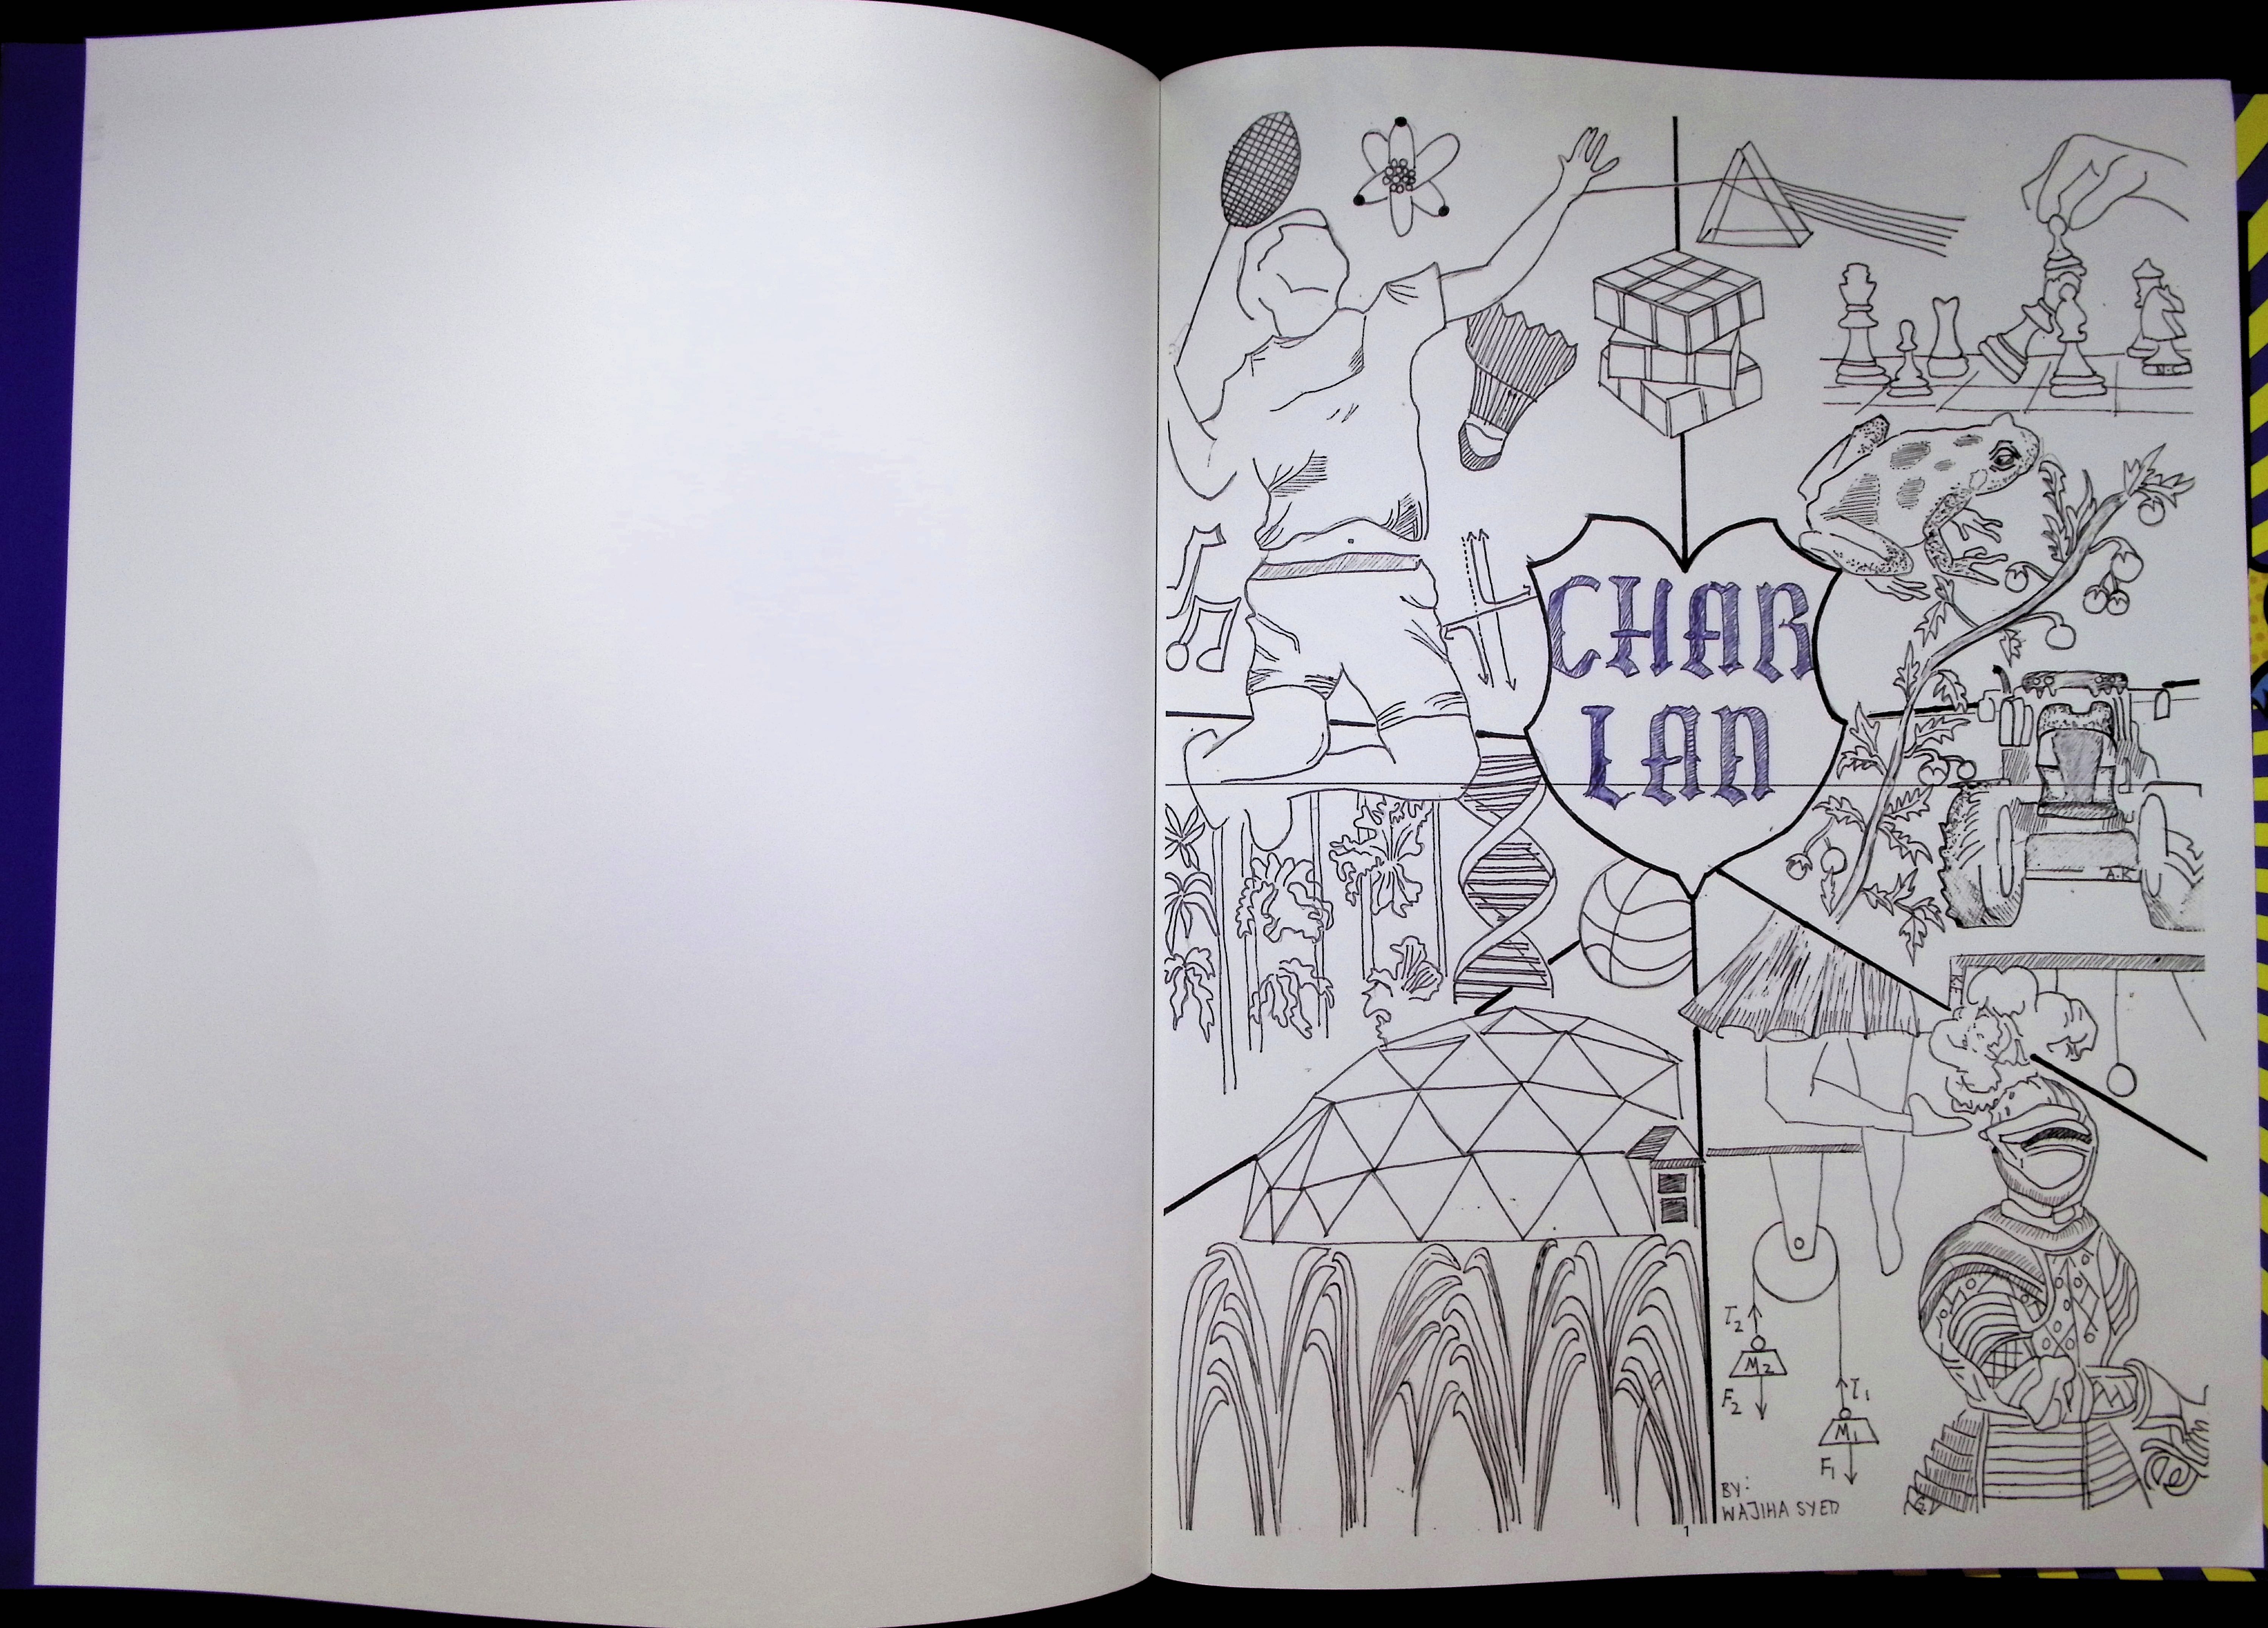 N.C
CHAR
LAN
A.K
K.F
T2
M2
F2
T1
M1
F1
BY:
WAJIHA SYED
1